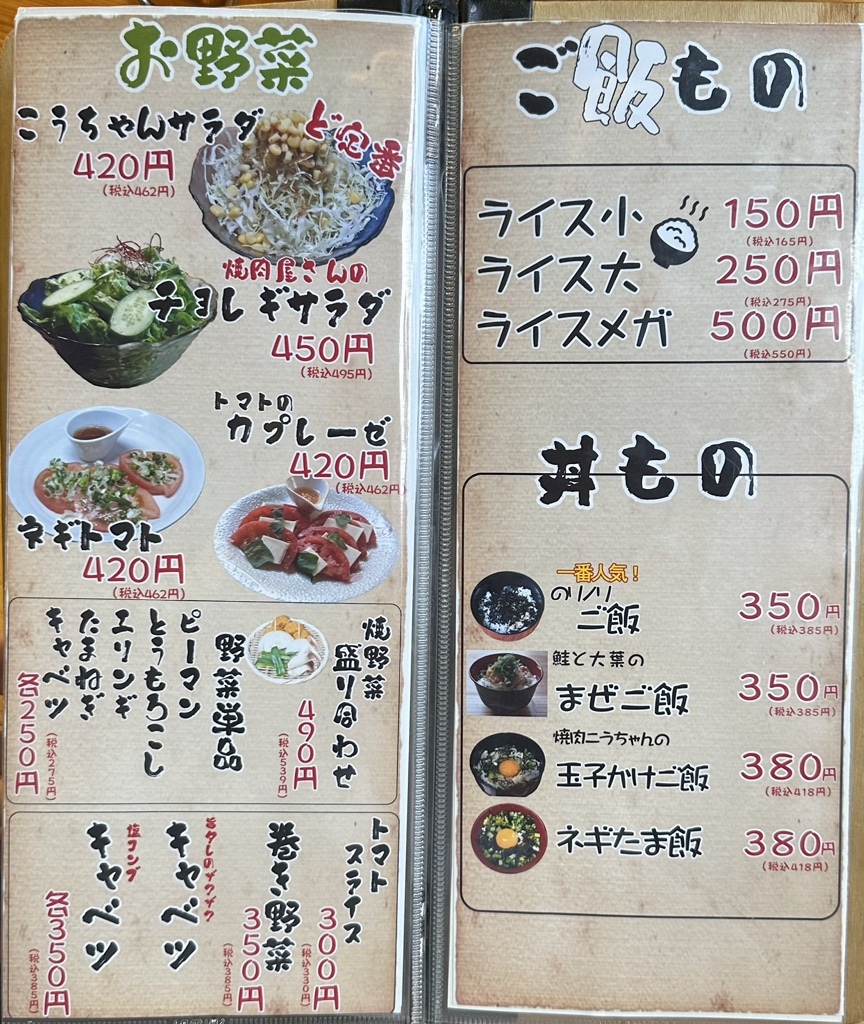 お野菜
こうちゃんサラダ
ど定番
420円
(税込462円)
焼肉屋さんの
チョレギサラダ
450円
(税込495円)
トマトの
カプレーゼ
420円
(税込462円)
ネギトマト
420円
(税込462円)
焼野菜
盛り合わせ
490円
(税込539円)
野菜単品
ピーマン
とうもろこし
エリンギ
たまねぎ
キャベツ
各250円
(税込275円)
トマト
スライス
300円
(税込330円)
巻き野菜
350円
(税込385円)
キャベツ
塩コンブ
キャベツ
各350円
(税込385円)
ご飯もの
ライス小
150円
(税込165円)
ライス大
250円
(税込275円)
ライスメガ
500円
(税込550円)
丼もの
一番人気!
のりノリ
ご飯
350円
(税込385円)
鮭と大葉の
まぜご飯
350円
(税込385円)
焼肉こうちゃんの
玉子かけご飯
380円
(税込418円)
ネギたま飯
380円
(税込418円)